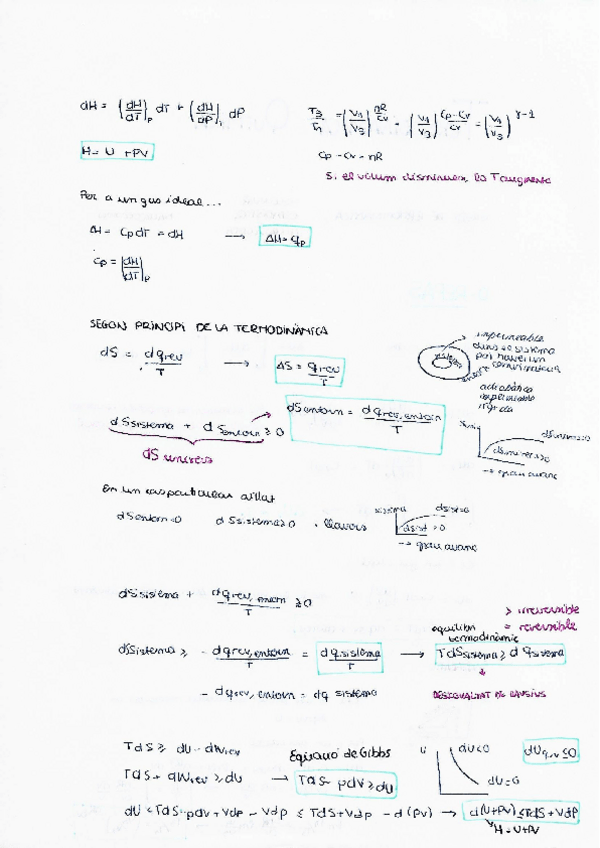 dH = (dH/dT)_P dT + (dH/dP)_T dP
T3/T1 = (V1/V3)^(nR/Cv) = (V1/V3)^((Cp-Cv)/Cv) = (V1/V3)^(γ-1)
H = U + PV
Cp - Cv = nR
Si el volum disminueix, la T augmenta
Per a un gas ideal...
ΔH = CpdT = dH → ΔH = qp
Cp = (dH/dT)_P
SEGON PRINCIPI DE LA TERMODINÀMICA
dS = dqrev/T → ΔS = qrev/T
impermeable
sistema
entorn
adiabàtica
impermeable
rígida
dSsistema + dSentorn ≥ 0
dSentorn = dqrev, entorn/T
dS univers
dSunivers=0
dSunivers>0
→ grau avanç
En un cas particular aïllat
dSentorn=0 dSsistema≥0 . llavors
sistema dsist=0
dsist > 0
→ grau avanç
dSsistema + dqrev, entorn/T ≥ 0
> irreversible
= reversible
equilibri
termodinàmic
dSsistema ≥ - dqrev, entorn/T = dq sistema/T → TdSsistema ≥ dqsistema
- dqrev, entorn = dq sistema
DESIGUALTAT DE CLAUSIUS
TdS ≥ dU - dWrev
Equació de Gibbs
U dU<0 dU=0
TdS + dWrev ≥ dU → TdS - pdV ≥ dU
dU ≤ TdS - pdV + Vdp - Vdp ≤ TdS + Vdp - d(PV) → d(U+PV) ≤ TdS + Vdp
H = U+PV